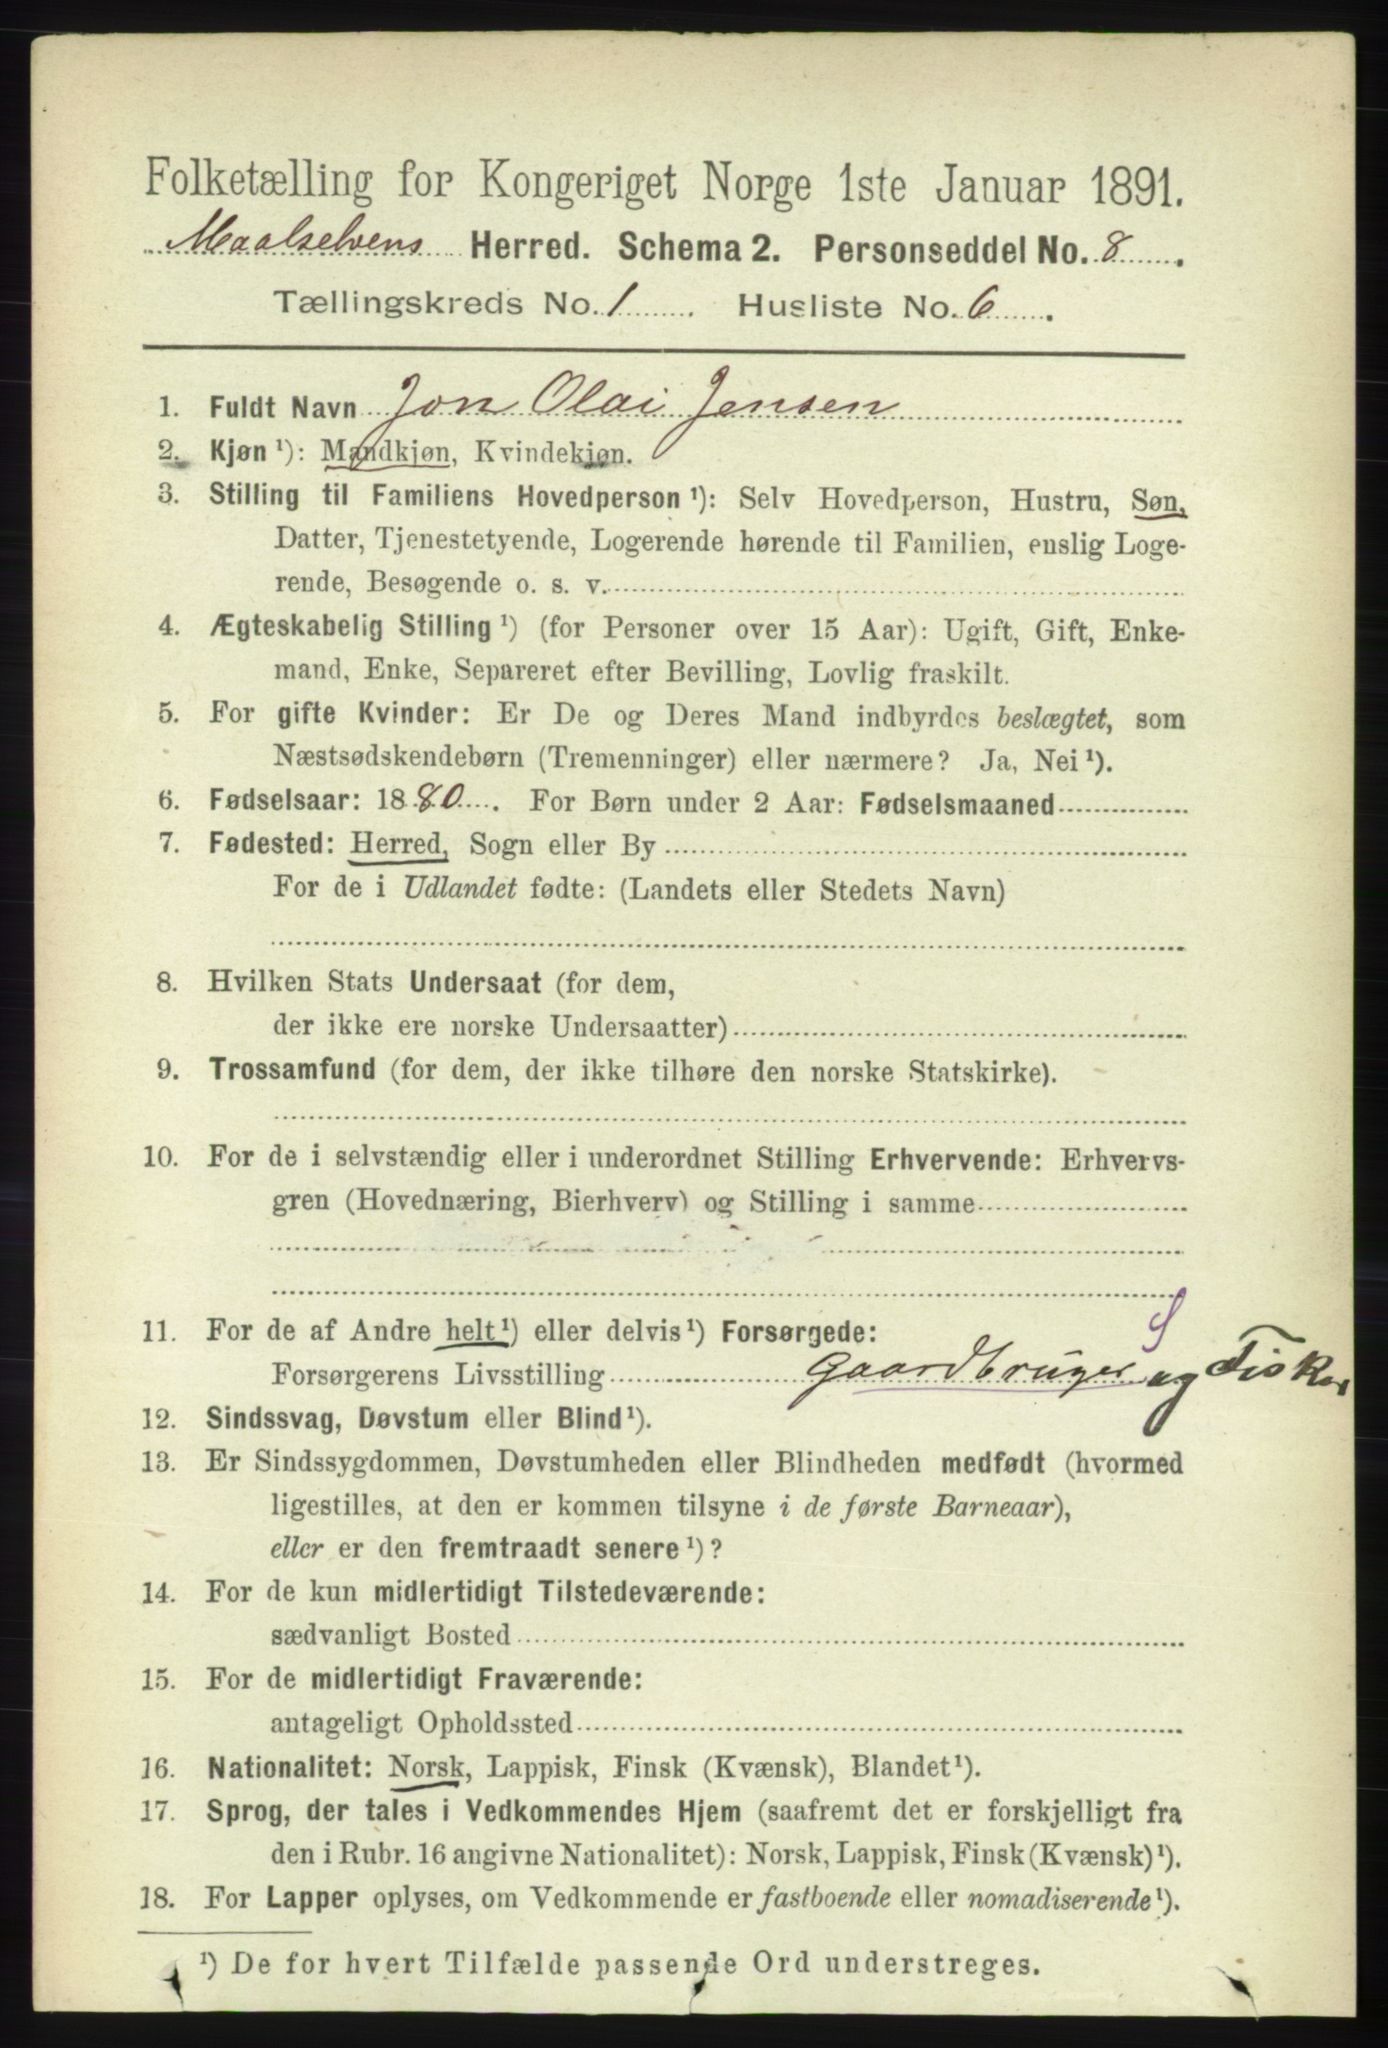 Folketælling for Kongeriget Norge 1ste Januar 1891.
Maalselvens Herred. Schema 2. Personseddel No. 8.
Tællingskreds No. 1. Husliste No. 6.
1. Fuldt Navn Jon Olai Jensen
2. Kjøn ¹): Mandkjøn, Kvindekjøn.
3. Stilling til Familiens Hovedperson ¹): Selv Hovedperson, Hustru, Søn,
Datter, Tjenestetyende, Logerende hørende til Familien, enslig Loge-
rende, Besøgende o. s. v.
4. Ægteskabelig Stilling ¹) (for Personer over 15 Aar): Ugift, Gift, Enke-
mand, Enke, Separeret efter Bevilling, Lovlig fraskilt.
5. For gifte Kvinder: Er De og Deres Mand indbyrdes beslægtet, som
Næstsødskendebørn (Tremenninger) eller nærmere? Ja, Nei ¹).
6. Fødselsaar: 1880. For Børn under 2 Aar: Fødselsmaaned
7. Fødested: Herred, Sogn eller By
For de i Udlandet fødte: (Landets eller Stedets Navn)
8. Hvilken Stats Undersaat (for dem,
der ikke ere norske Undersaatter)
9. Trossamfund (for dem, der ikke tilhøre den norske Statskirke).
10. For de i selvstændig eller i underordnet Stilling Erhvervende: Erhvervs-
gren (Hovednæring, Bierhverv) og Stilling i samme
11. For de af Andre helt ¹) eller delvis ¹) Forsørgede: S
Forsørgerens Livsstilling Gaardbruger og Fisker
12. Sindssvag, Døvstum eller Blind ¹).
13. Er Sindssygdommen, Døvstumheden eller Blindheden medfødt (hvormed
ligestilles, at den er kommen tilsyne i de første Barneaar),
eller er den fremtraadt senere ¹)?
14. For de kun midlertidigt Tilstedeværende:
sædvanligt Bosted
15. For de midlertidigt Fraværende:
antageligt Opholdssted
16. Nationalitet: Norsk, Lappisk, Finsk (Kvænsk), Blandet ¹).
17. Sprog, der tales i Vedkommendes Hjem (saafremt det er forskjelligt fra
den i Rubr. 16 angivne Nationalitet): Norsk, Lappisk, Finsk (Kvænsk) ¹).
18. For Lapper oplyses, om Vedkommende er fastboende eller nomadiserende ¹).
¹) De for hvert Tilfælde passende Ord understreges.